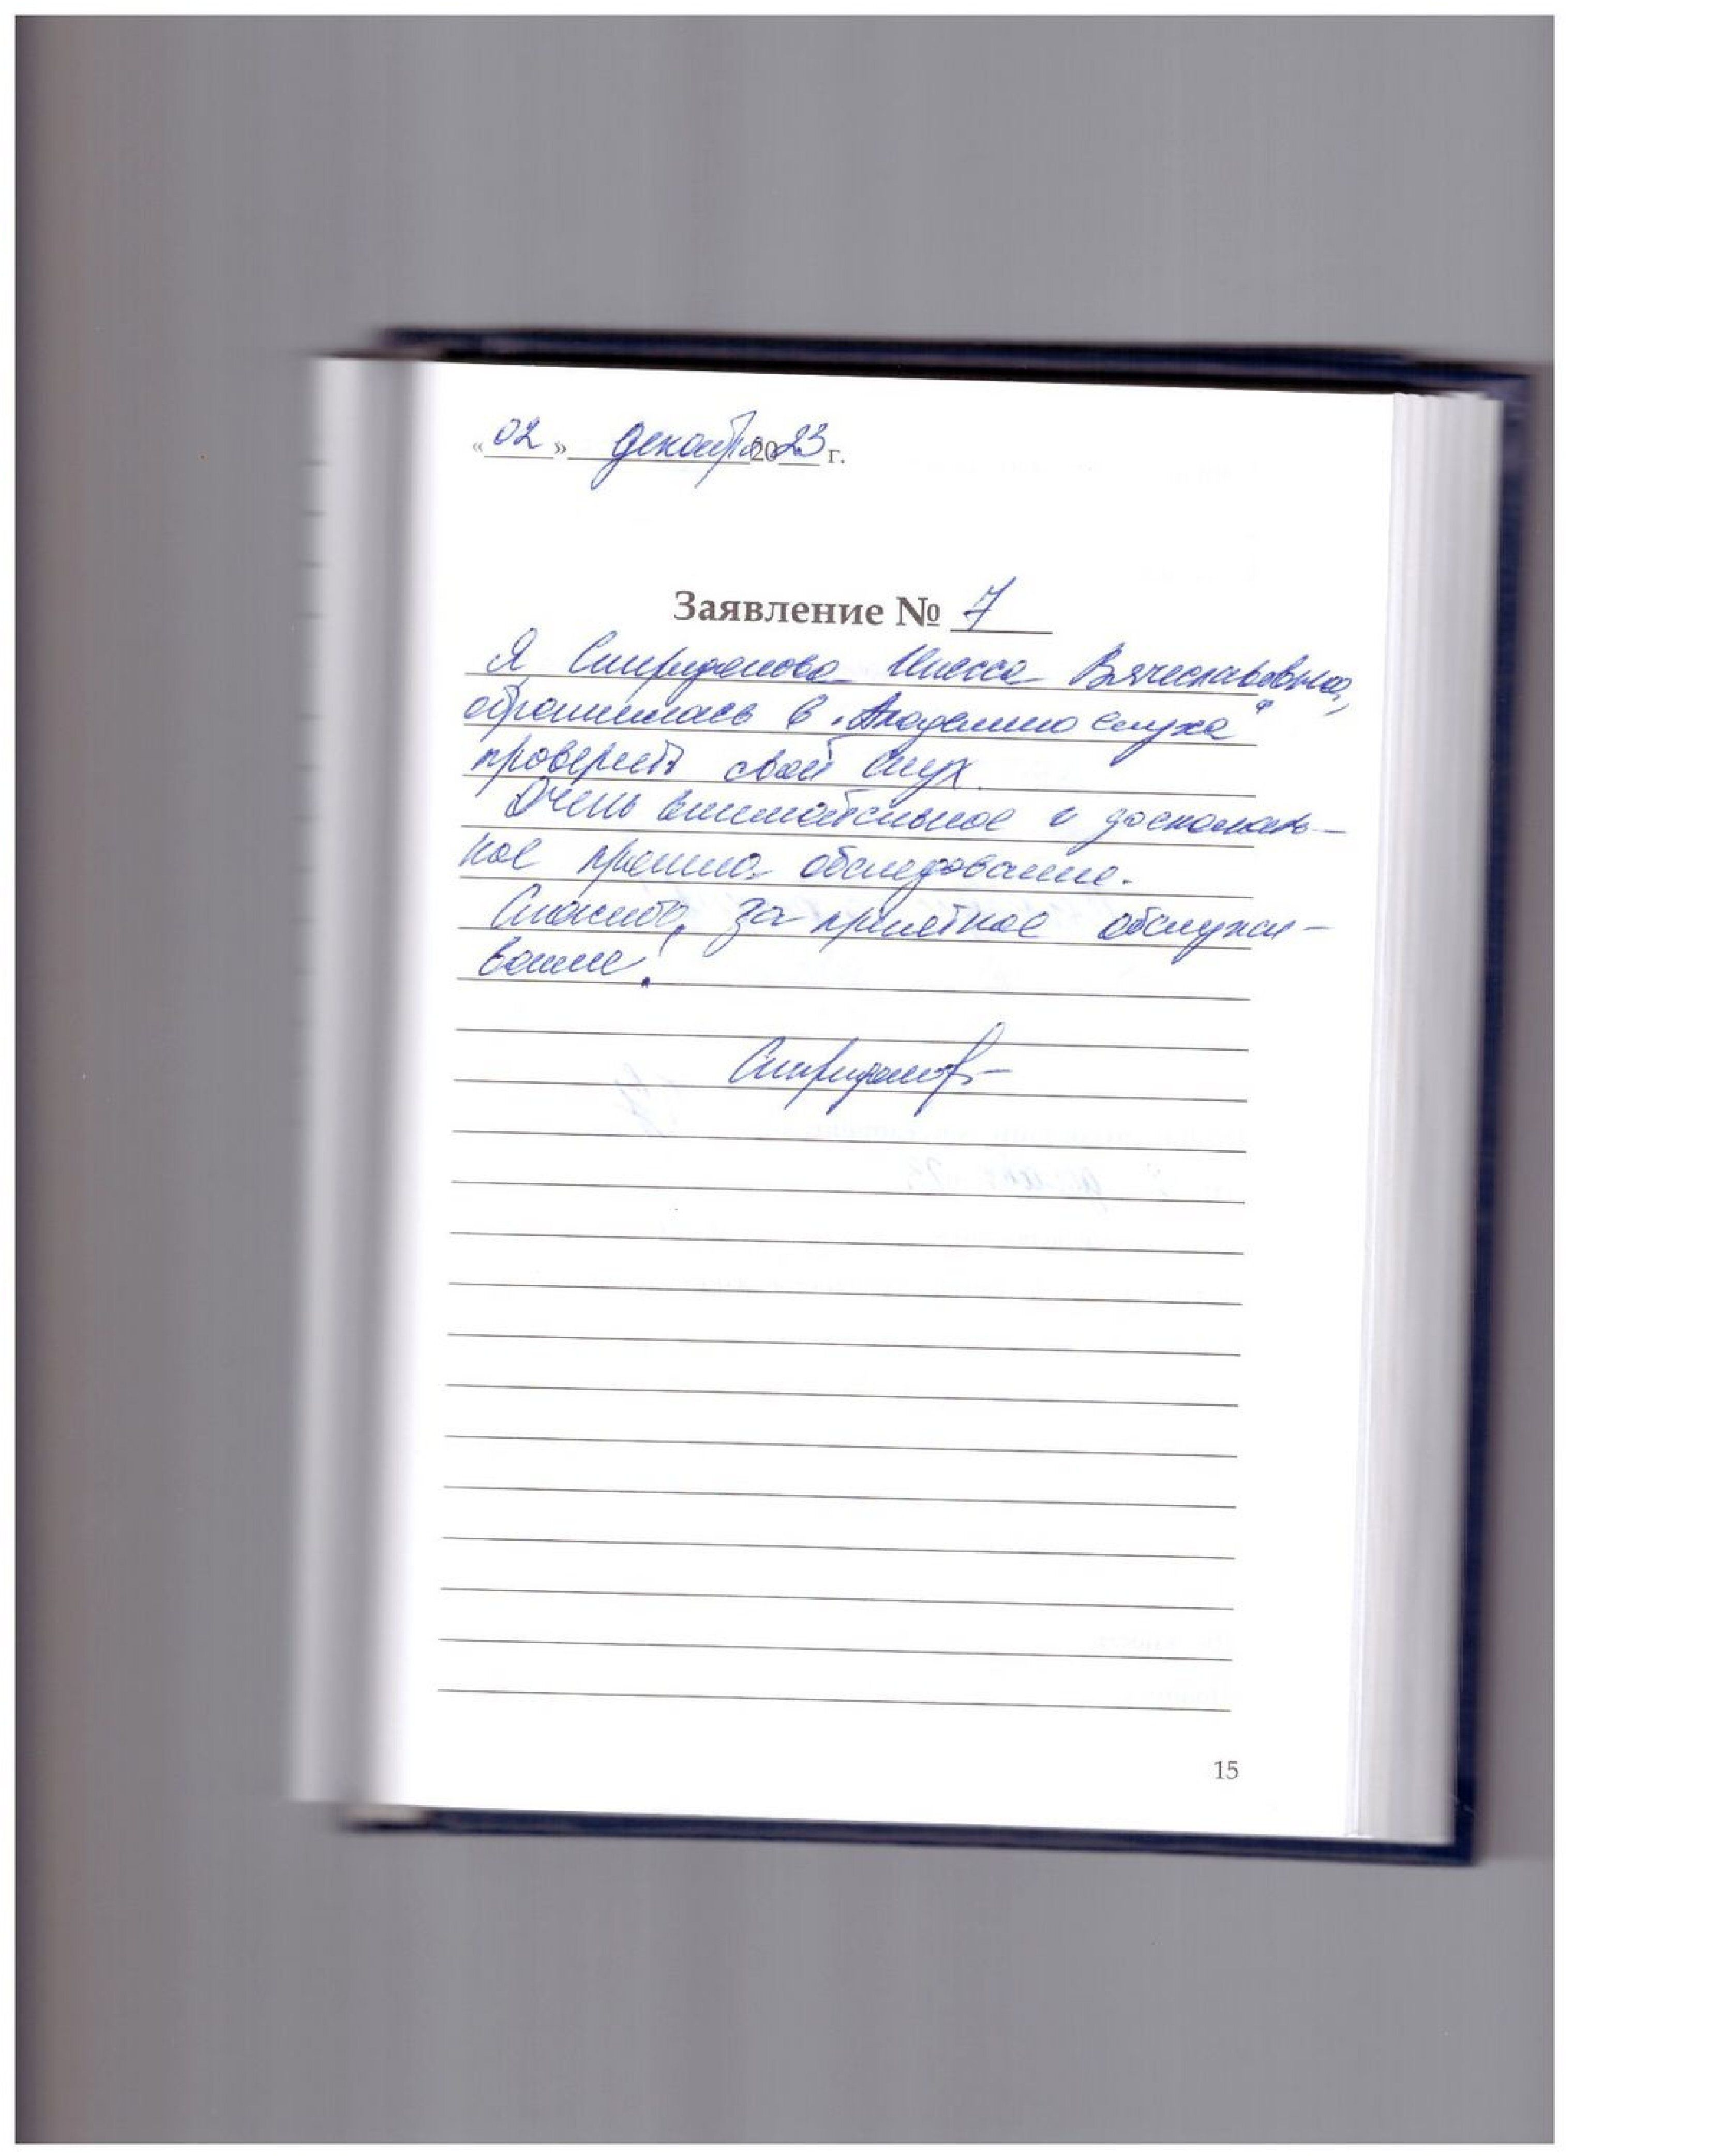 «02» декабря 2023 г.
Заявление № 7
Я, Спиридонова Инесса Вячеславовна,
обратилась в "Академию слуха"
проверить свой слух.
Очень внимательное и доскональ-
ное прошла обследование.
Спасибо, за приятное обслужи-
вание!
Спиридонова
15